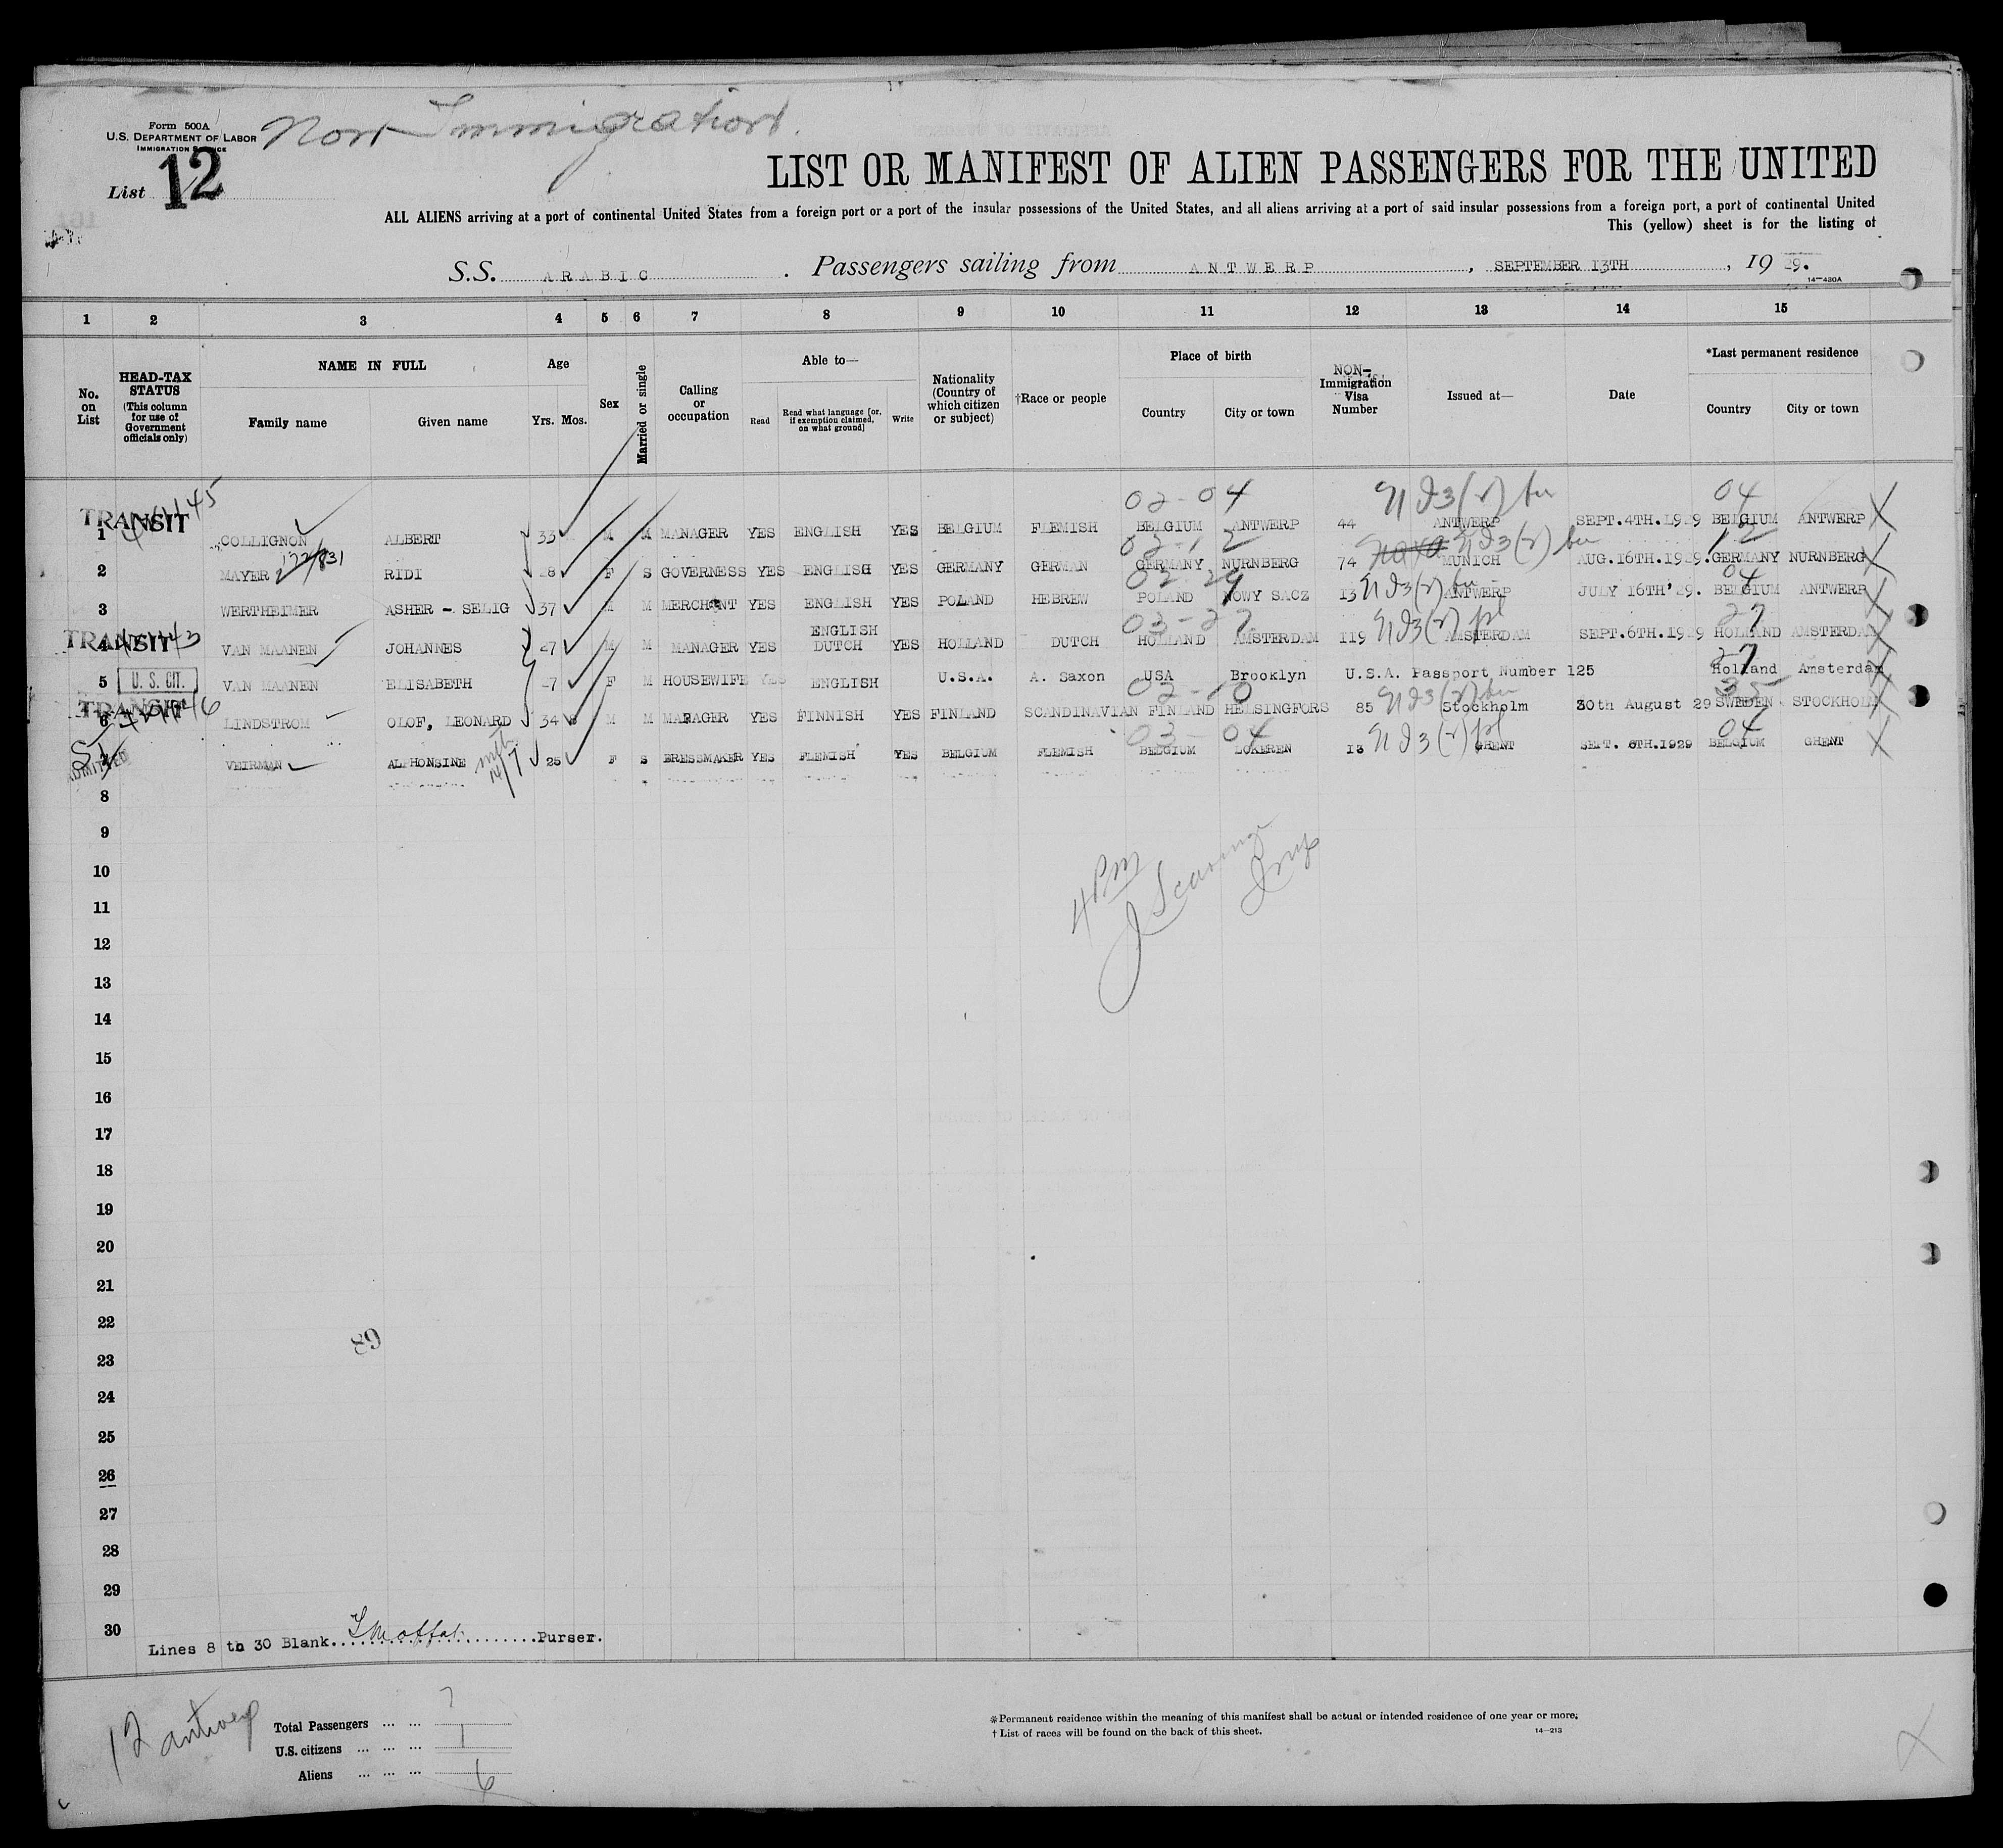 Form 500A
U.S. DEPARTMENT OF LABOR
IMMIGRATION SERVICE
Non Immigration.
List 12
LIST OR MANIFEST OF ALIEN PASSENGERS FOR THE UNITED
ALL ALIENS arriving at a port of continental United States from a foreign port or a port of the insular possessions of the United States, and all aliens arriving at a port of said insular possessions from a foreign port, a port of continental United
This (yellow) sheet is for the listing of
S.S. ARABIC. Passengers sailing from ANTWERP, SEPTEMBER 13TH, 19 29.
14-430A
1 2 3 4 5 6 7 8 9 10 11 12 13 14 15
No. on List
HEAD-TAX STATUS
(This column for use of Government officials only)
NAME IN FULL
Family name Given name
Age
Yrs. Mos.
Sex
Married or single
Calling or occupation
Able to—
Read
Read what language [or, if exemption claimed, on what ground]
Write
Nationality (Country of which citizen or subject)
†Race or people
Place of birth
Country City or town
NON-Immigration Visa Number
Issued at—
Date
*Last permanent residence
Country City or town
02-04 04
TRANSIT
1 COLLIGNON ALBERT 33 M M MANAGER YES ENGLISH YES BELGIUM FLEMISH BELGIUM ANTWERP 44 ANTWERP SEPT.4TH.1929 BELGIUM ANTWERP X
02-12 12
2 MAYER RIDI 28 F S GOVERNESS YES ENGLISH YES GERMANY GERMAN GERMANY NURNBERG 74 MUNICH AUG.16TH.1929. GERMANY NURNBERG X
04
3 WERTHEIMER ASHER - SELIG 37 M M MERCHANT YES ENGLISH YES POLAND HEBREW POLAND NOWY SACZ 13 ANTWERP JULY 16TH'29. BELGIUM ANTWERP X
03-27 27
TRANSIT
4 VAN MAANEN JOHANNES 47 M M MANAGER YES ENGLISH DUTCH YES HOLLAND DUTCH HOLLAND AMSTERDAM 119 AMSTERDAM SEPT.6TH.1929 HOLLAND AMSTERDAM X
27
5 U. S. CIT. VAN MAANEN ELISABETH F M HOUSEWIFE YES ENGLISH U.S.A. A. Saxon USA Brooklyn U.S.A. Passport Number 125 Holland Amsterdam
02-10 35
TRANSIT
6 LINDSTROM OLOF, LEONARD 34 M M MANAGER YES FINNISH YES FINLAND SCANDINAVIAN FINLAND HELSINGFORS 85 Stockholm 30th August 29 SWEDEN STOCKHOLM X
03-04 04
ADMITTED
7 VEIRMAN ALPHONSINE 25 F S DRESSMAKER YES FLEMISH YES BELGIUM FLEMISH BELGIUM LOKEREN 13 GHENT SEPT. 6TH.1929 BELGIUM GHENT X
8
9
10
4 PM
11
12
13
14
15
16
17
18
19
20
21
22
89
23
24
25
26
27
28
29
30
Lines 8 to 30 Blank.......................Purser.
12 Antwerp
Total Passengers ... ... 7
U.S. citizens ... ... ... 1
Aliens ... ... ... 6
*Permanent residence within the meaning of this manifest shall be actual or intended residence of one year or more.
† List of races will be found on the back of this sheet.
14-213
X